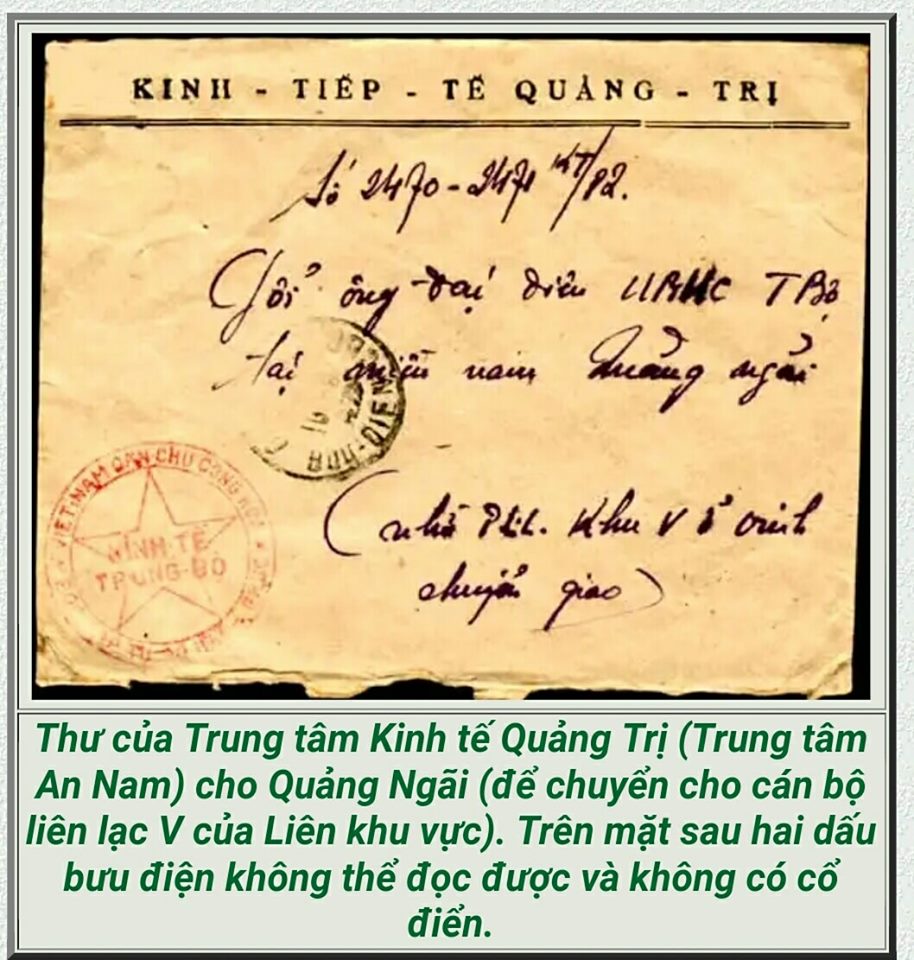 KINH - TIẾP - TẾ QUẢNG - TRỊ
Số 2470-2471 KT/P2.
Gởi ông đại diện UBHC TBộ
tại miền nam Quảng ngãi
BUU-DIEN
VIET-NAM DAN CHU CONG HOA
KINH-TẾ
TRUNG-BỘ
(nhờ Khu V ở
chuyển giao)
Thư của Trung tâm Kinh tế Quảng Trị (Trung tâm
An Nam) cho Quảng Ngãi (để chuyển cho cán bộ
liên lạc V của Liên khu vực). Trên mặt sau hai dấu
bưu điện không thể đọc được và không có cổ
điển.